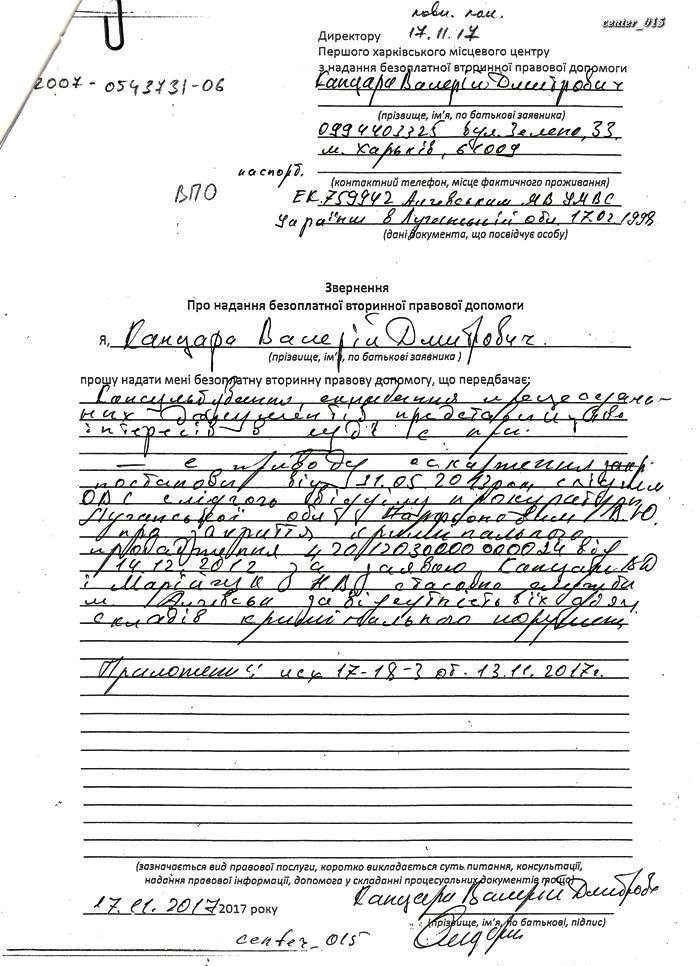 center_015
Директору 17.11.17
Першого харківського місцевого центру
з надання безоплатної вторинної правової допомоги
2007-0543731-06
Канцара Валерій Дмитрович
(прізвище, ім'я, по батькові заявника)
0994403325 вул. Зелена, 33
м. Харьків, 61009
паспорт.
(контактний телефон, місце фактичного проживання)
ВПО
ЕК 759942 Алчевським МВ УМВС
України в Луганській обл. 17.02.1998
(дані документа, що посвідчує особу)
Звернення
Про надання безоплатної вторинної правової допомоги
Я, Канцара Валерій Дмитрович
(прізвище, ім'я, по батькові заявника )
прошу надати мені безоплатну вторинну правову допомогу, що передбачає:
Консультування, складання процесуаль-
них документів
інтересів в суді
з приводу оскарження
постанови від 31.05.2013 слідчим
ОВС слідчого відділу прокуратури
Луганської обл. В.Ю.
про закриття кримінального
провадження від
14.12.2012 за заявою Канцари ВД
і НВ стосовно
м. Алчевська за відсутність в їх діях
складів кримінального
Приложения: исх 17-18-3 от. 13.11.2017г.
(зазначається вид правової послуги, коротко викладається суть питання, консультації,
надання правової інформації, допомога у складанні процесуальних документів тощо)
Канцара Валерій Дмитрович
17.11.2017 2017 року
(прізвище, ім'я, по батькові, підпис)
center_015